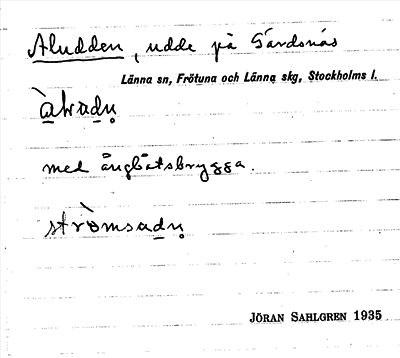 Aludden, udde på Gärdsnäs
Länna sn, Frötuna och Länna skg, Stockholms l.
med ångbåtsbrygga.
JÖRAN SAHLGREN 1935